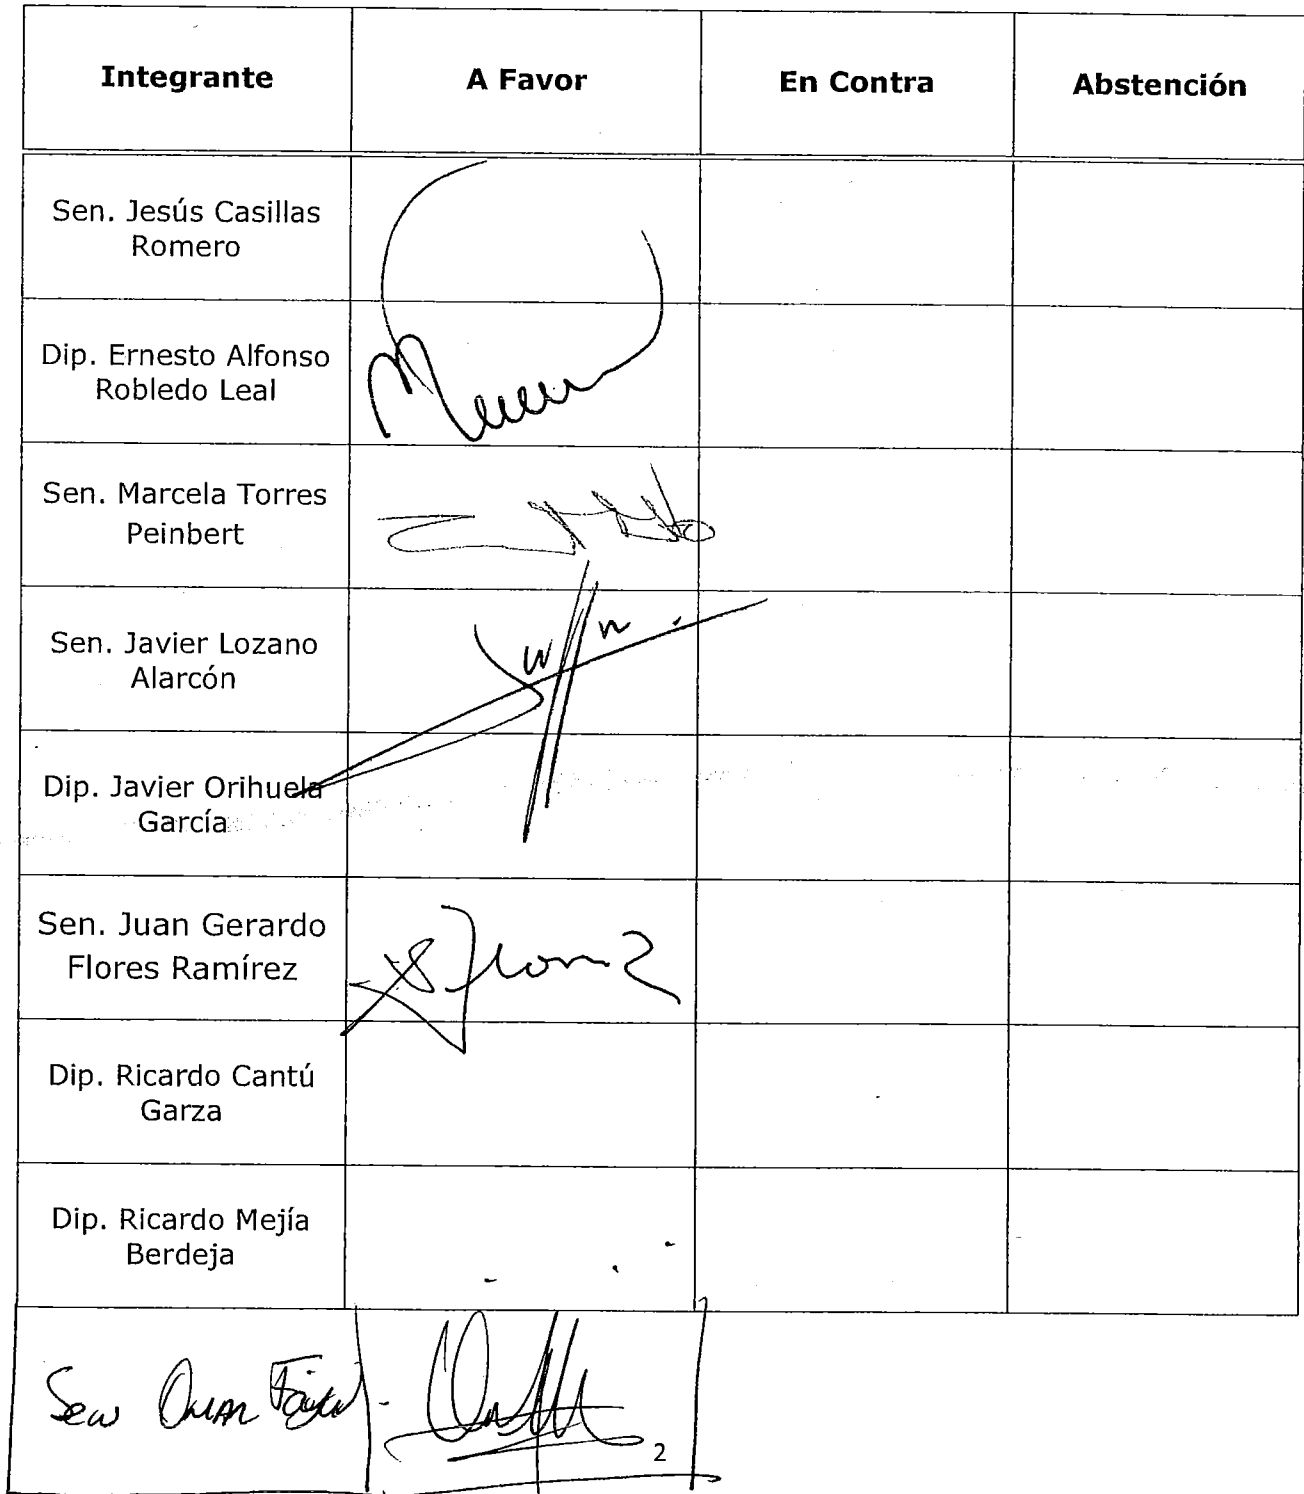 Integrante A Favor En Contra Abstención
Sen. Jesús Casillas
Romero
Dip. Ernesto Alfonso
Robledo Leal
Sen. Marcela Torres
Peinbert
Sen. Javier Lozano
Alarcón
Dip. Javier Orihuela
García
Sen. Juan Gerardo
Flores Ramírez
Dip. Ricardo Cantú
Garza
Dip. Ricardo Mejía
Berdeja
Sen Omar
2